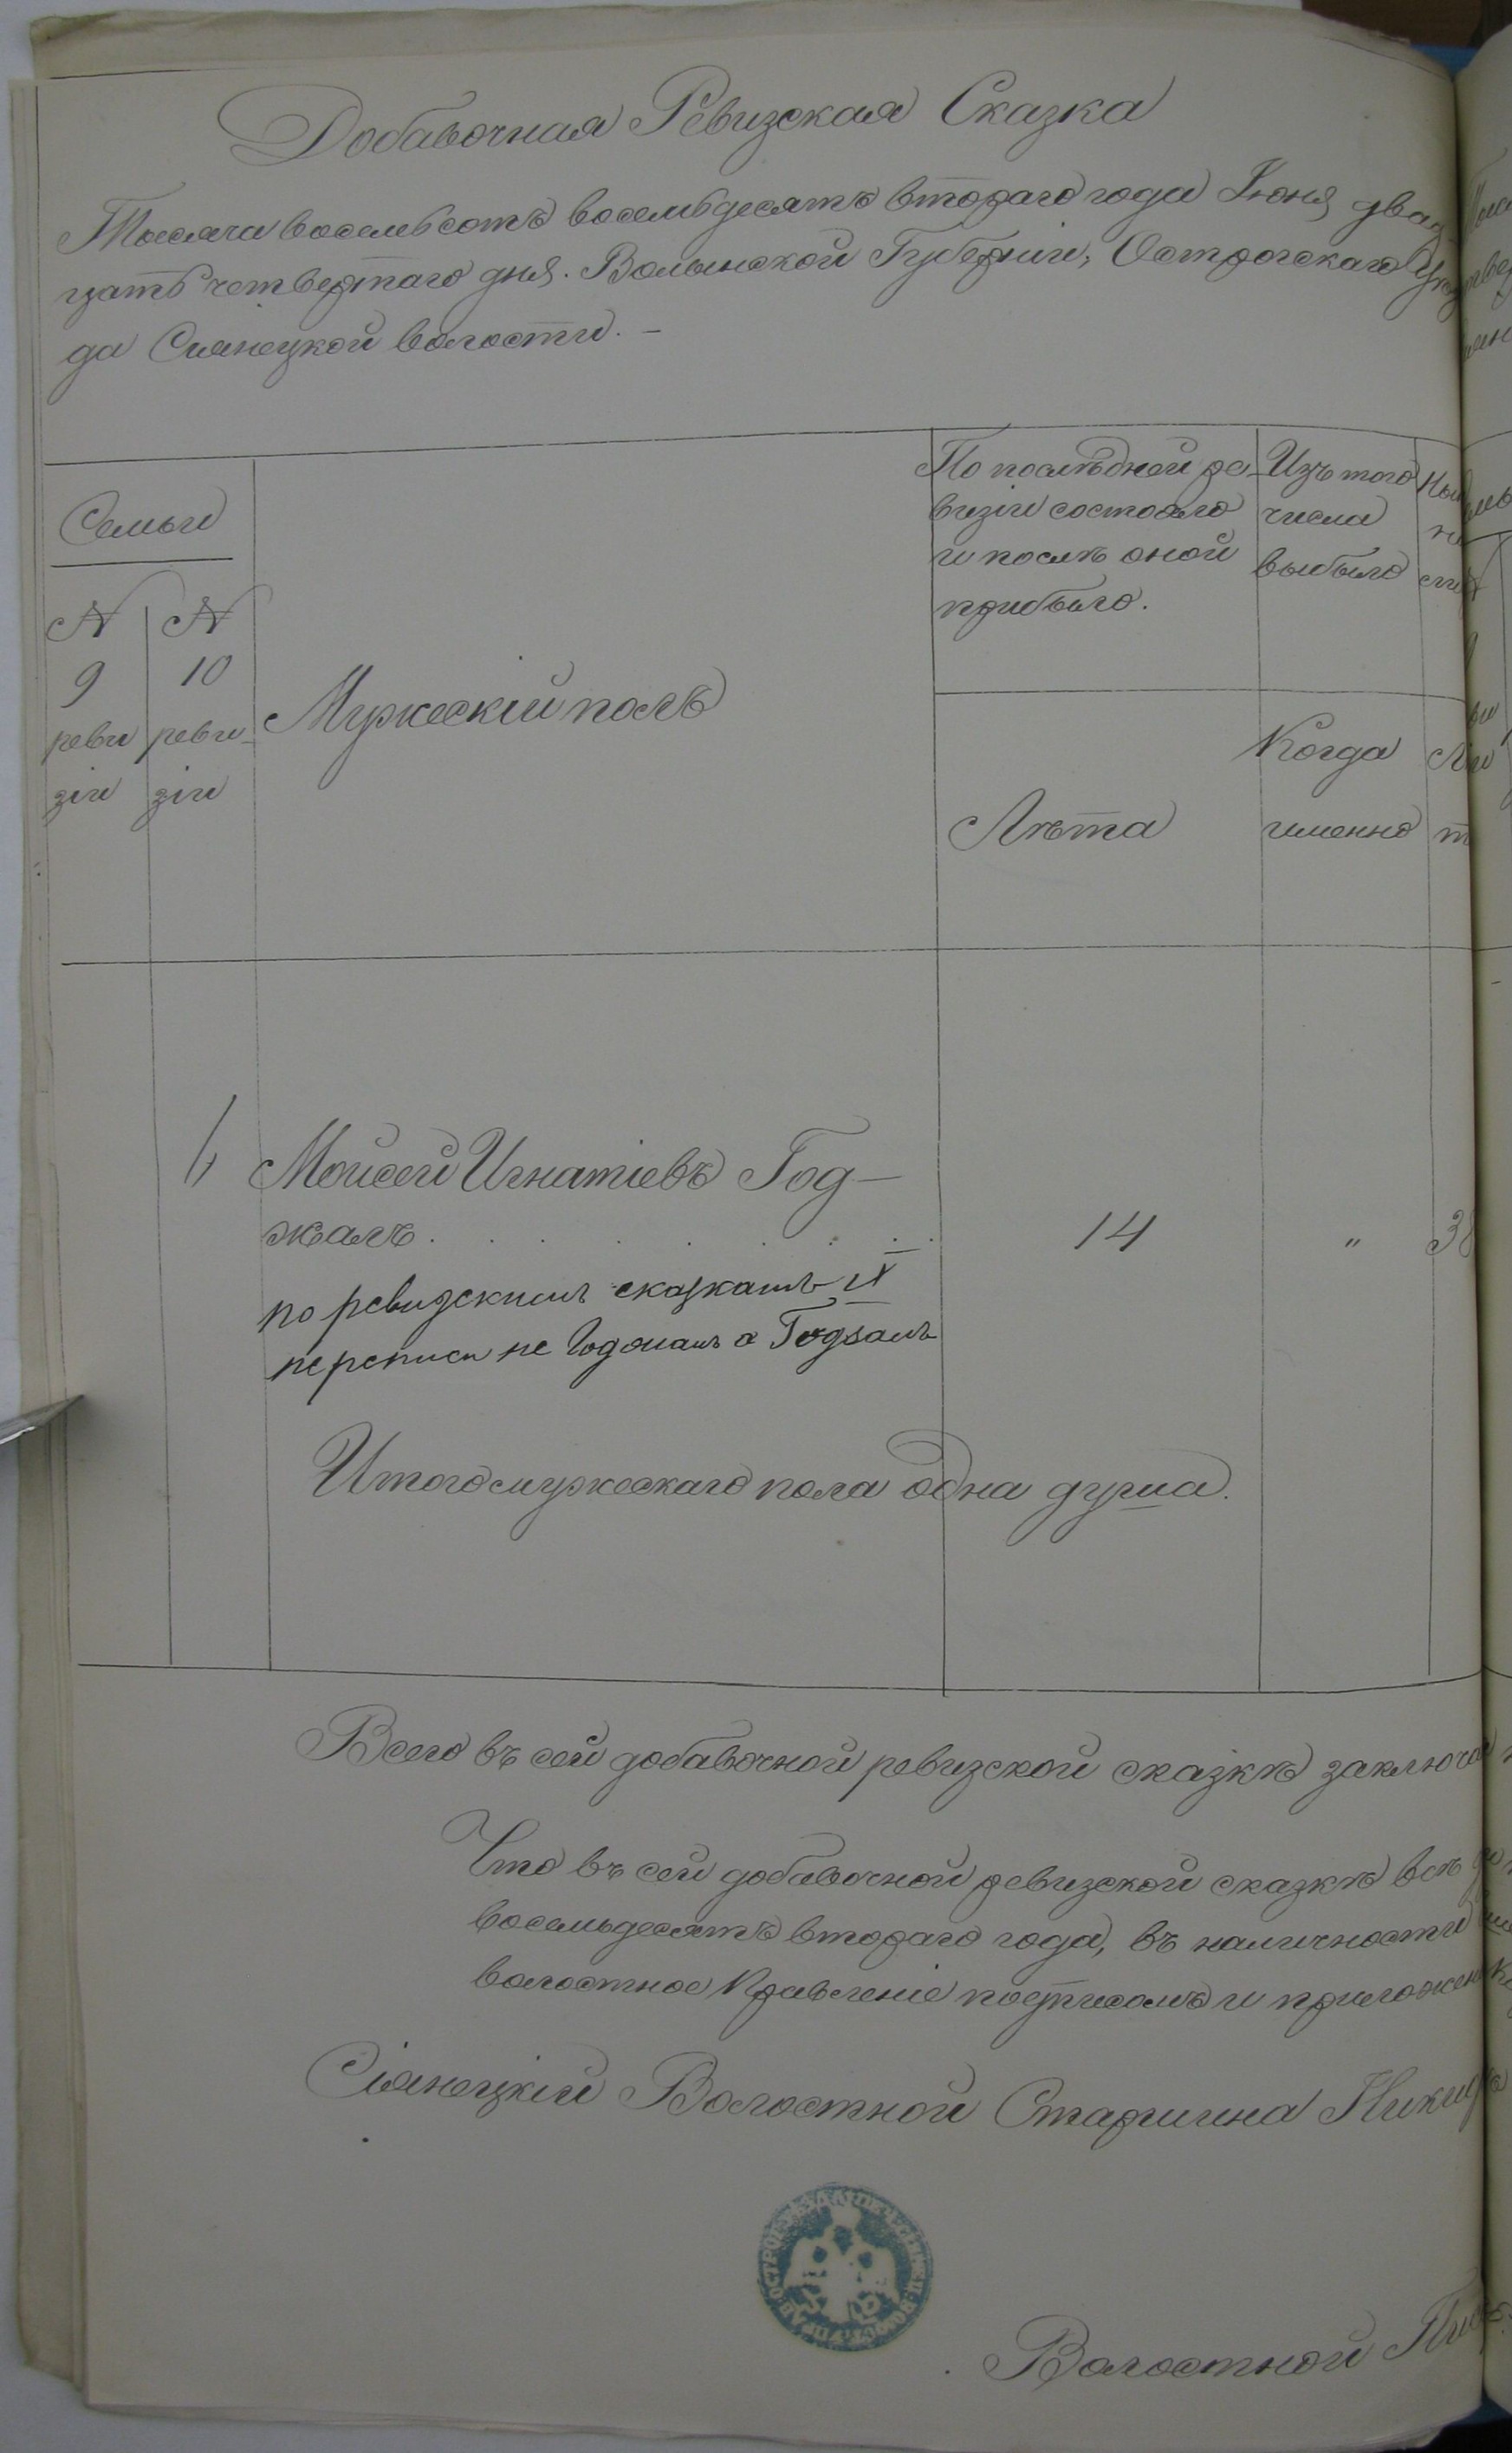 Добавочная Ревизская Сказка
Тысяча восемьсотъ восемьдесятъ втораго года Іюня два
цать четвертаго дня. Волынской Губерніи, Острогскаго Уѣз
да Сіянецкой волости. –
Семьи
По послѣдней ре-
визіи состояло
и послѣ оной
прибыло.
Изъ того
числа
выбыло
N N
9 10
реви реви-
зіи зіи
Мужескій полъ
Лѣта
Когда
именно
Моисей Игнатіевъ Год-
жалъ . . . . . . .
14 " 38
по ревизскимъ сказкамъ IX
переписи не Годжалъ а Годзалъ
Итого мужескаго пола одна душа.
Всего въ сей добавочной ревизской сказкѣ заключа
Что въ сей добавочной ревизской сказкѣ всѣ
восемьдесятъ втораго года, въ наличности
волостное Правленіе подписомъ и приложен
Сіянецкій Волостной Старшина Никиф
Волостной Пис